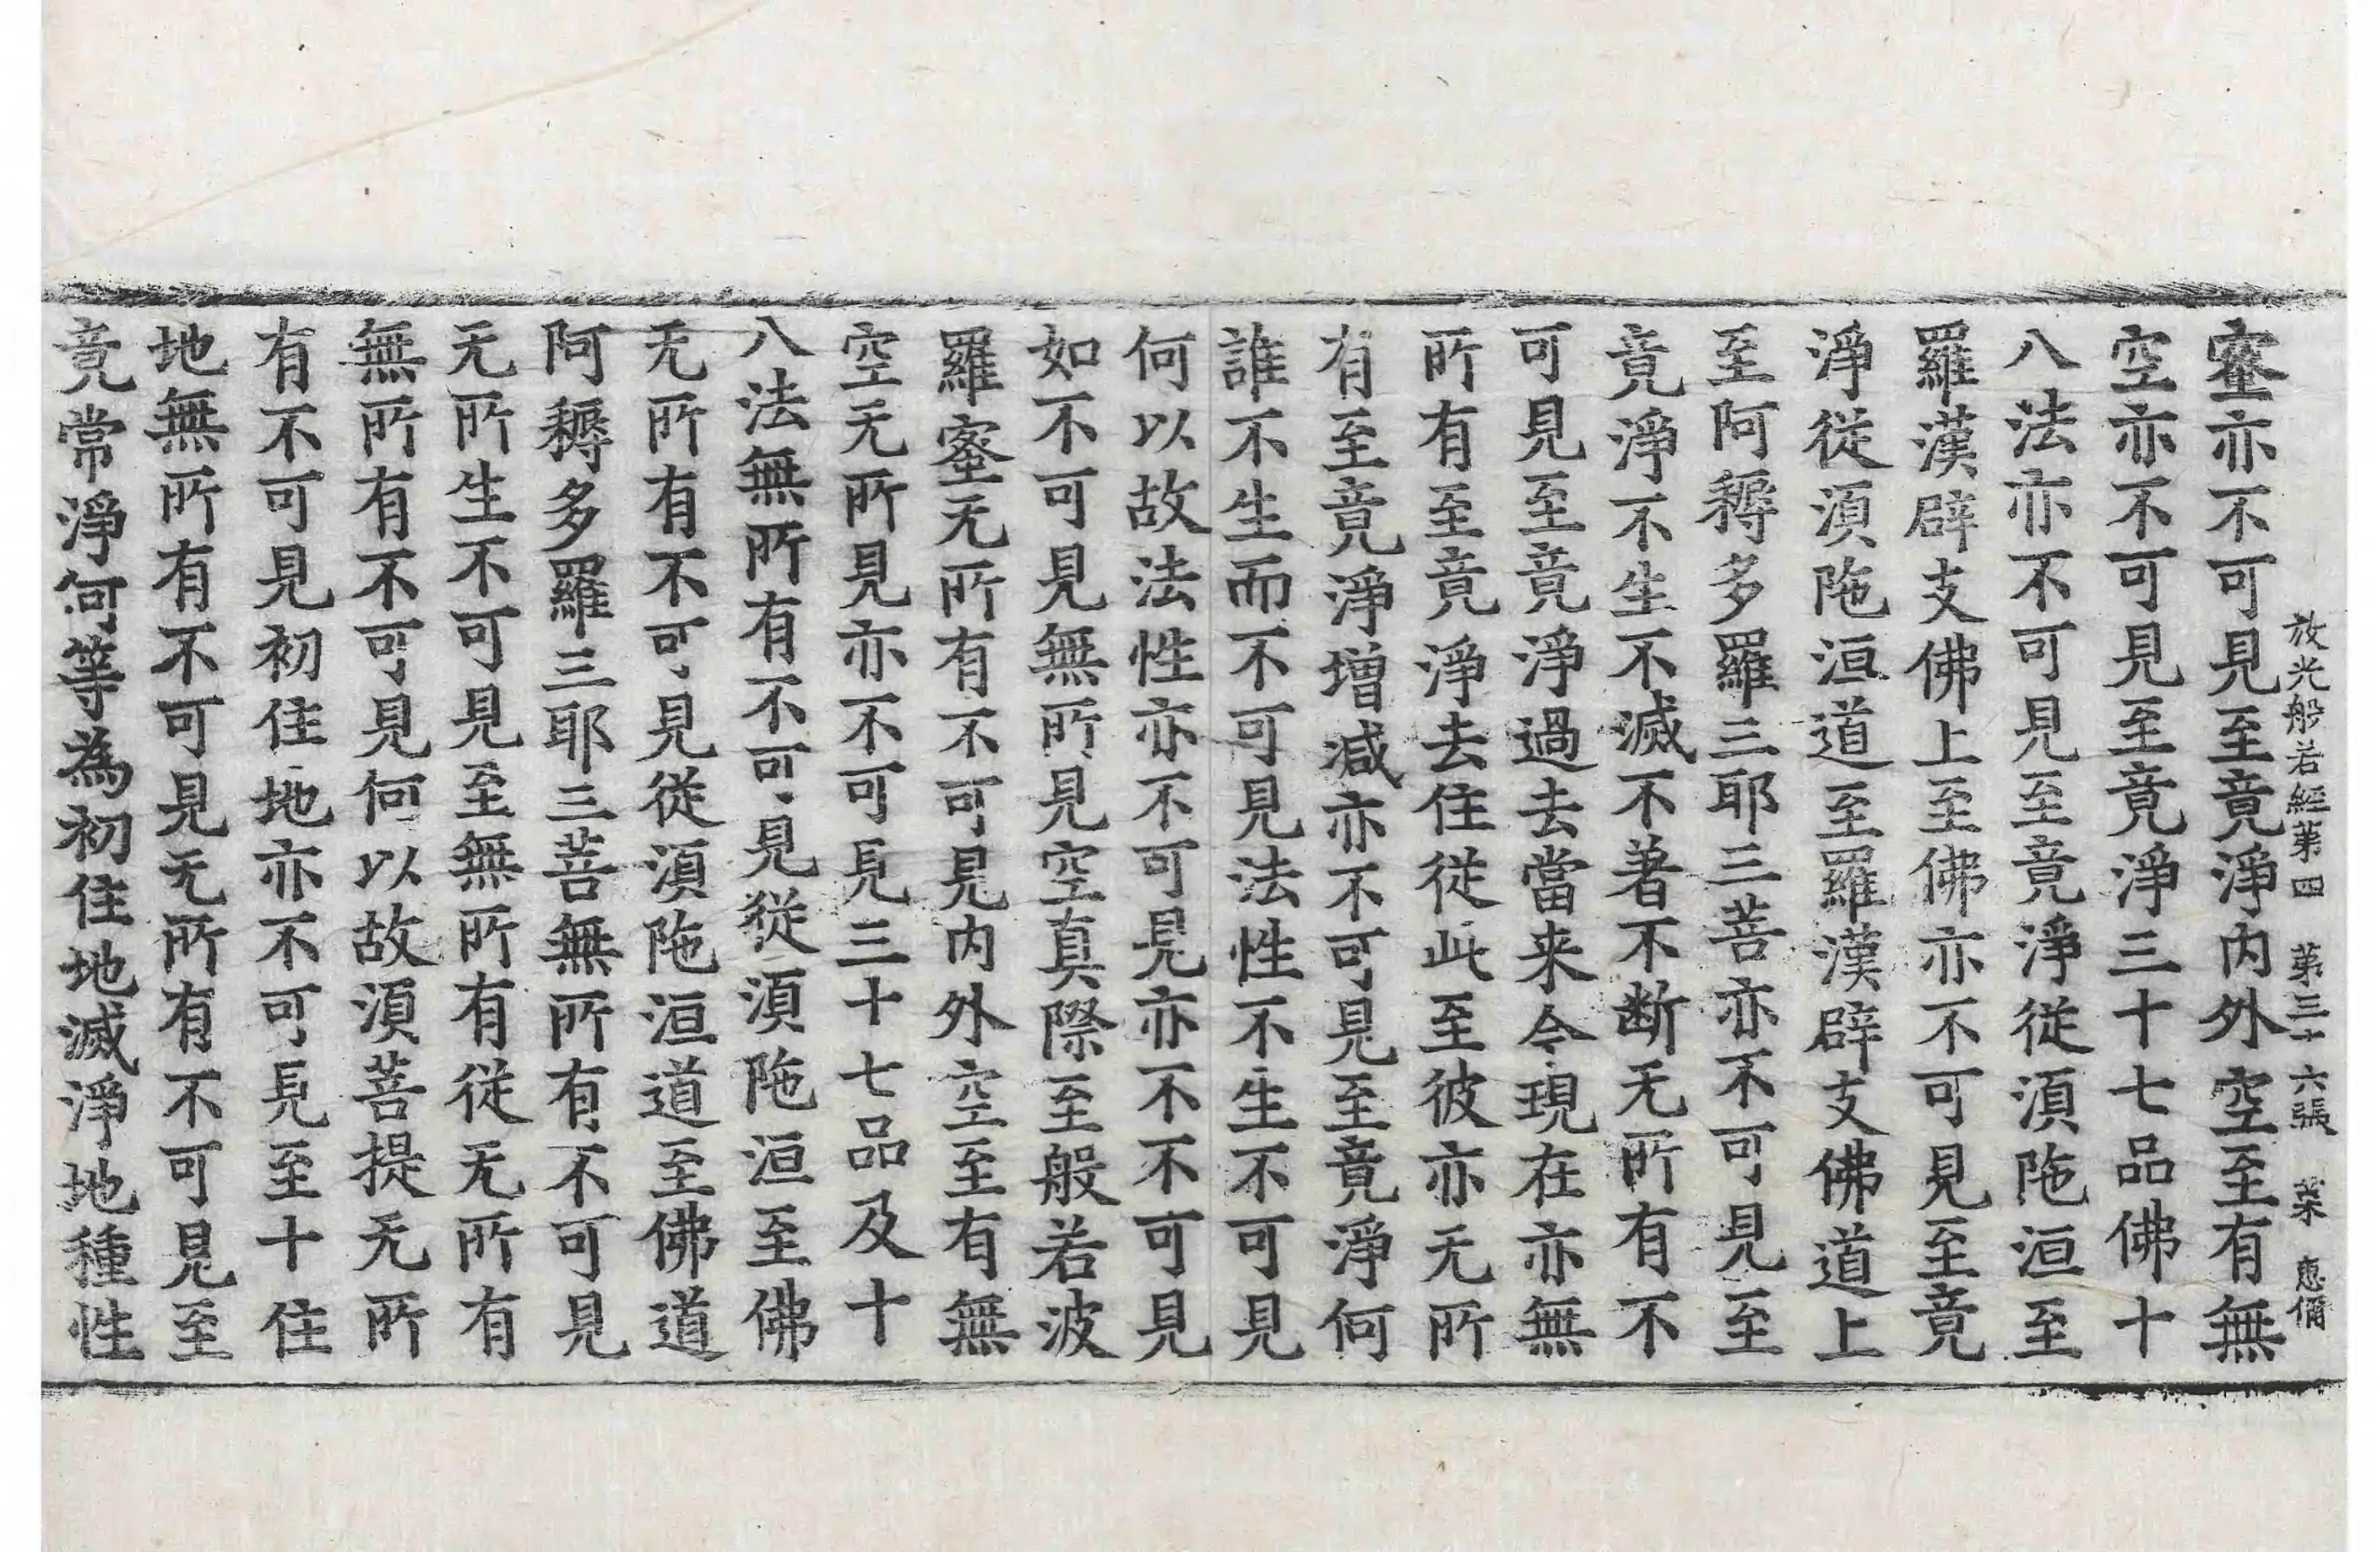 放光般若經第四 第三十六張 菜 惠俻
蜜亦不可見至竟淨内外空至有無
空亦不可見至竟淨三十七品佛十
八法亦不可見至竟淨從湏陁洹至
羅漢辟支佛上至佛亦不可見至竟
淨從湏陁洹道至羅漢辟支佛道上
至阿耨多羅三耶三菩亦不可見至
竟淨不生不滅不著不断无所有不
可見至竟淨過去當来今現在亦無
所有至竟淨去住從此至彼亦无所
有至竟淨增减亦不可見至竟淨何
誰不生而不可見法性不生不可見
何以故法性亦不可見亦不不可見
如不可見無所見空真際至般若波
羅蜜无所有不可見内外空至有無
空无所見亦不可見三十七品及十
八法無所有不可見從湏陁洹至佛
无所有不可見從湏陁洹道至佛道
阿耨多羅三耶三菩無所有不可見
无所生不可見至無所有從无所有
無所有不可見何以故湏菩提无所
有不可見初住地亦不可見至十住
地無所有不可見无所有不可見至
竟常淨何等為初住地滅淨地種性